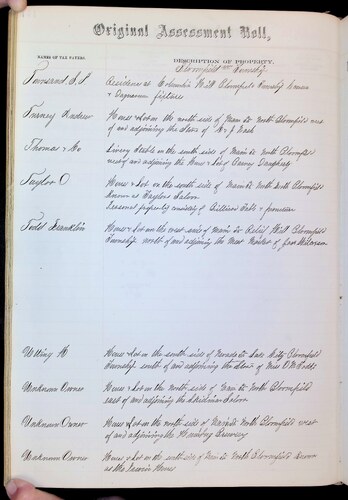 Original Assessment Roll,
NAMES OF TAX PAYERS.
DESCRIPTION OF PROPERTY.
Bloomfield Township
Townsand, S. P.
Residence at Columbia Hill Bloomfield Township House
& Daguerean fixtures
Tracey Andrew
House & Lot on the north side of Main St North Bloomfield west
of and adjoining the Store of & J Nash
Thomas & Co
Livery Stable on the south side of Main St North Bloomfield
west of and adjoining the House & Lot of Henry Daugherty
Taylor O
House & Lot on the south side of Main St North Bloomfield
known as Taylors Saloon
Personal property consisting of Billiard Table & furniture
Todd Franklin
House & Lot on the west side of Main St Relief Hill Bloomfield
Township north of and adjoining the Meat Market of
Utting H
House & Lot on the south side of Nevada St Lake City Bloomfield
Township south of and adjoining the Store of
Unknown Owner
House & Lot on the north side of Main St North Bloomfield
east of and adjoining the
Unknown Owner
House & Lot on the north side of St North Bloomfield west
of and adjoining the Humbug Brewery
Unknown Owner
House & Lot on the south side of Main St North Bloomfield known
as the House